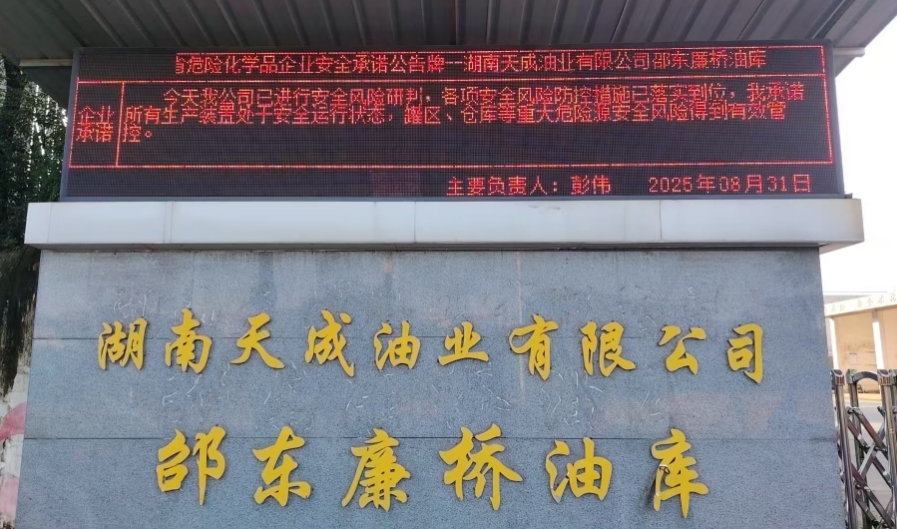 省危险化学品企业安全承诺公告牌--湖南天成油业有限公司邵东廉桥油库
企业承诺
今天我公司已进行安全风险研判，各项安全风险防控措施已落实到位，我承诺
所有生产装置处于安全运行状态，罐区、仓库等重大危险源安全风险得到有效管
控。
主要负责人：彭伟 2025年08月31日
湖南天成油业有限公司
邵东廉桥油库